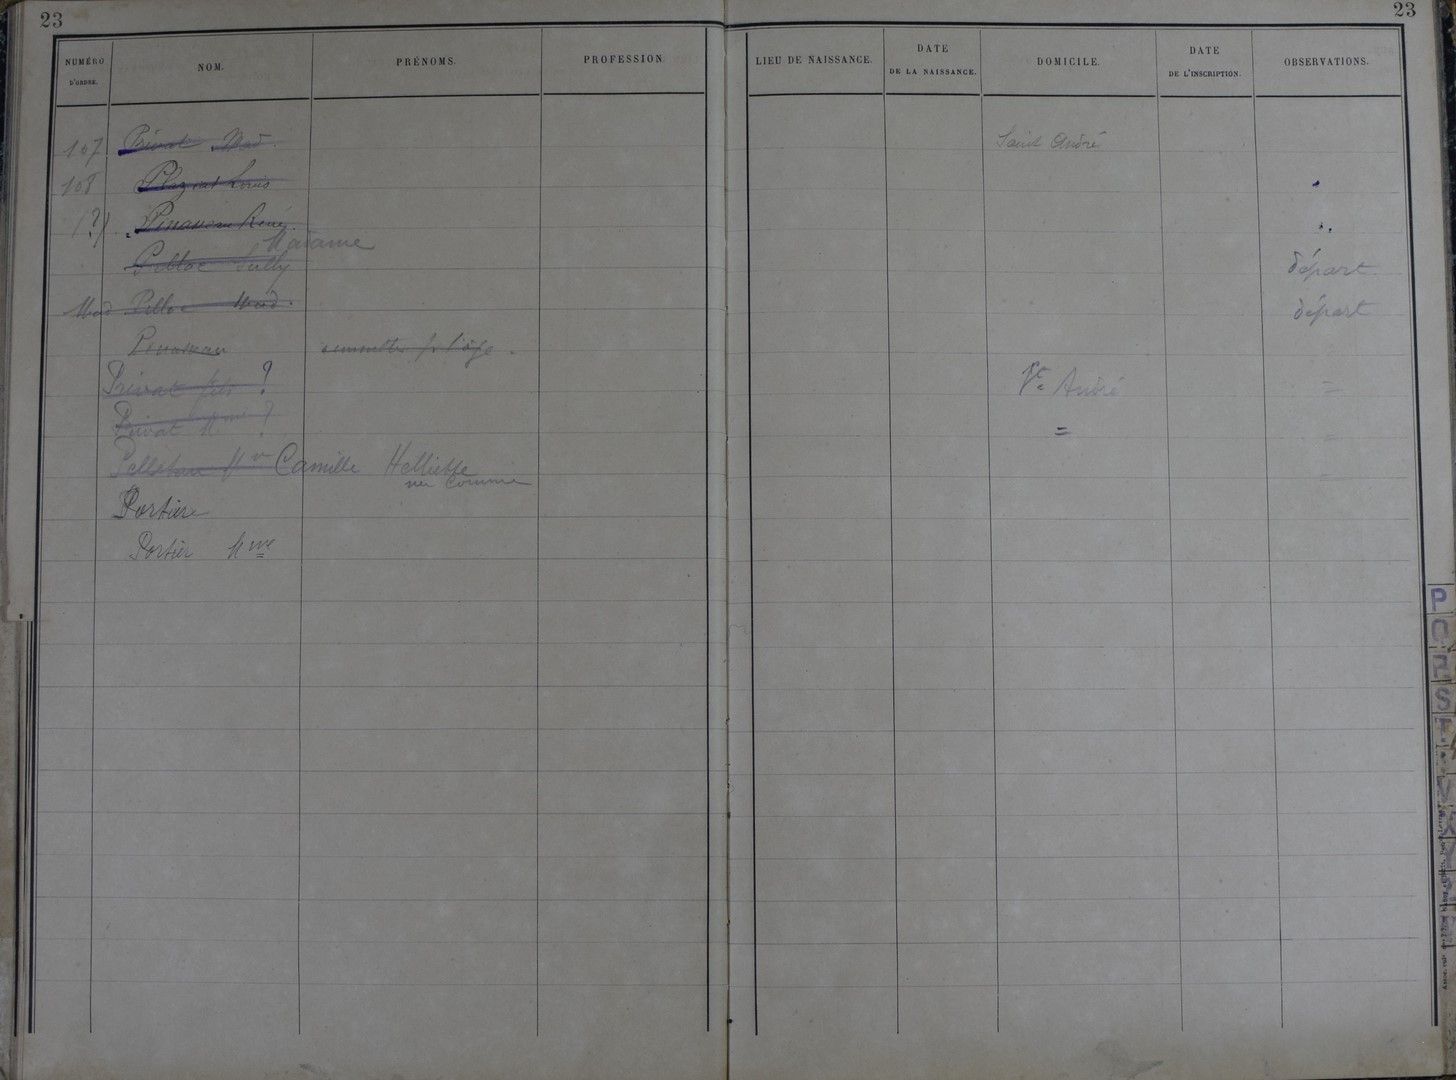 23
23
NUMÉRO D'ORDRE. NOM. PRÉNOMS. PROFESSION LIEU DE NAISSANCE. DATE DE LA NAISSANCE. DOMICILE. DATE DE L'INSCRIPTION. OBSERVATIONS.
107 Privat Mad. Saint André
108 Plazent Louis
(?) Pinauseau René
Madame
Pelloc Sully départ
Mad Pelloc Mad. départ
Pinauseau
Privat fils ? St André =
Privat Mme ? = =
Pelletan Camille Helliette
née Comme
Portiere
Portier Mme
P
S
V